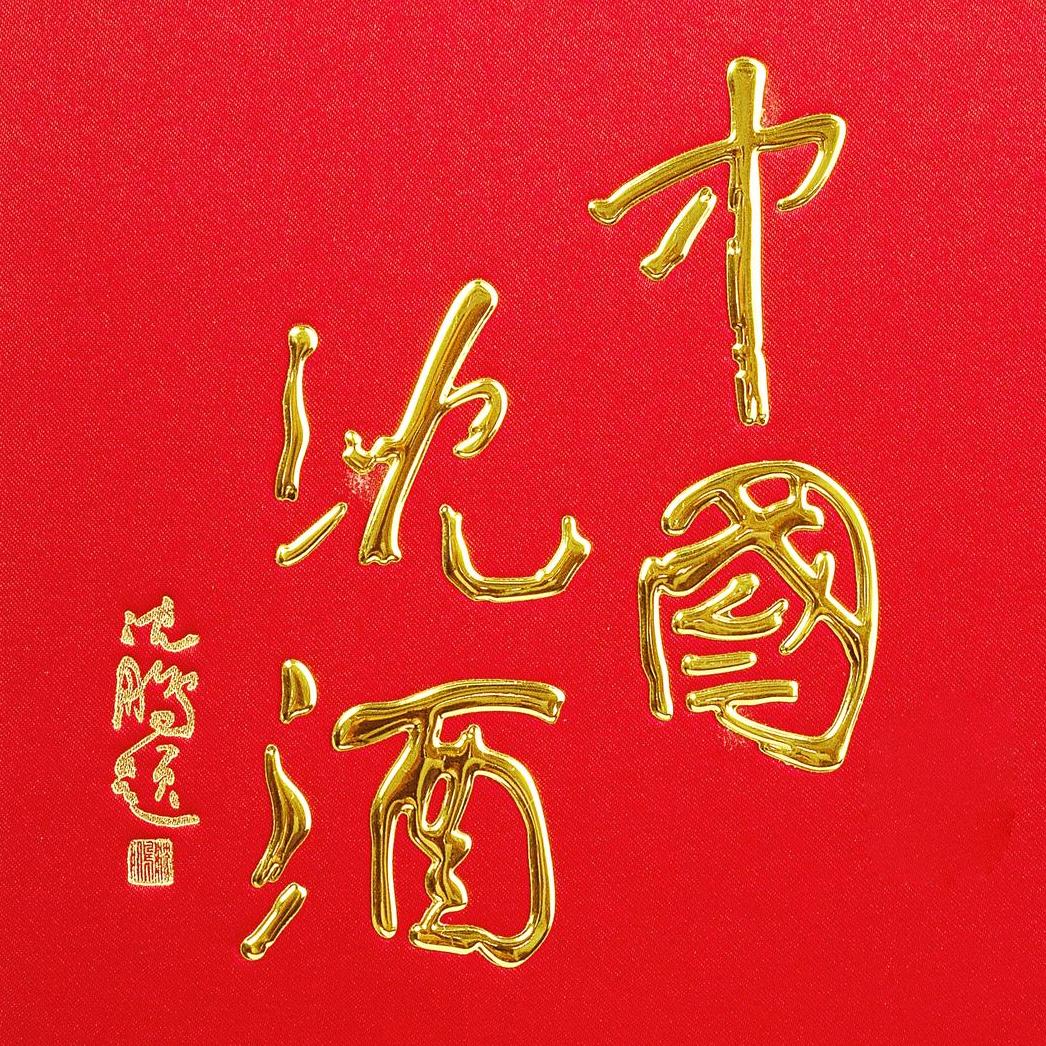 中國
沈酒
沈鵬題